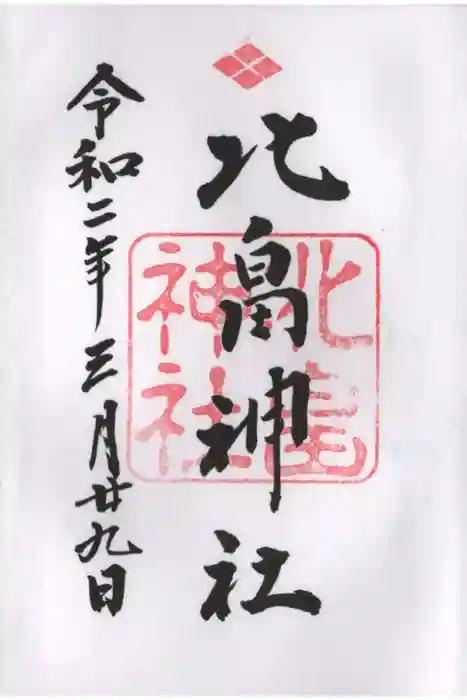 北畠神社
北畠
神社
令和二年三月廿九日